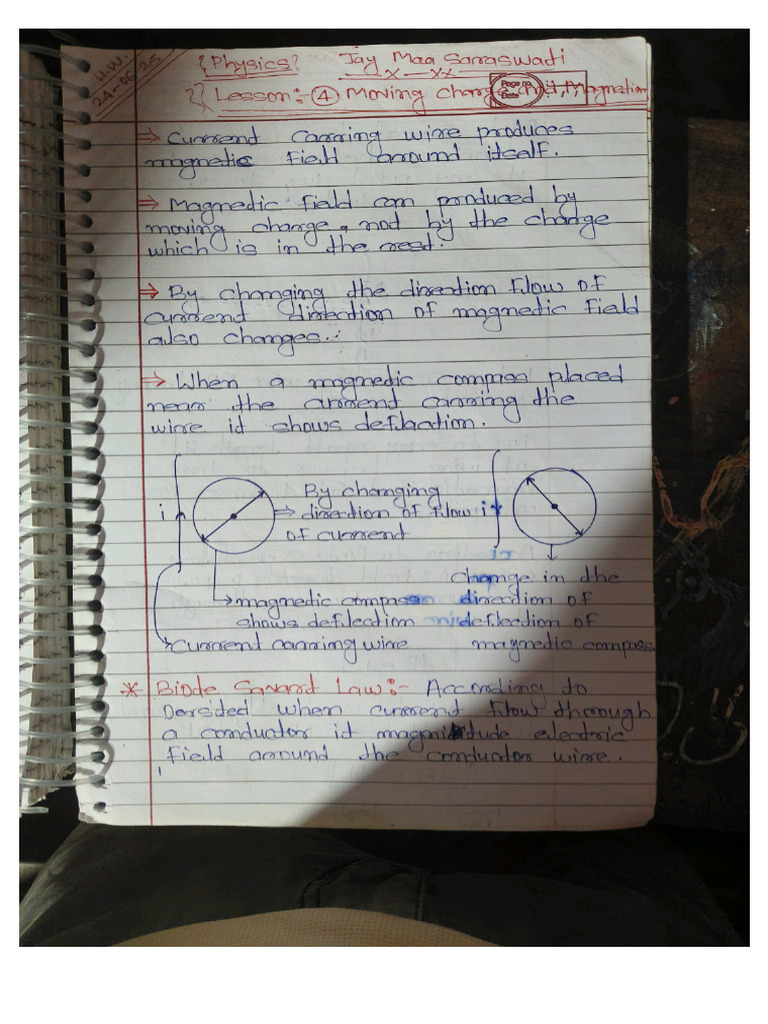 H.W.
24-06-25
{Physics} Jay Maa Saraswati
x — xx
Page no.
Date
Lesson:- 4 Moving Charge And, Magnetism
⇒ Current Carring wire produces
magnetic field around itself.
⇒ Magnetic field can produced by
moving charge, not by the charge
which is in the rest.
⇒ By changing the direction flow of
current direction of magnetic field
also changes.
⇒ When a magnetic compass placed
near the current carring the
wire it shows deflaction.
By changing
i ⇒ direction of flow i
of current
change in the
magnetic compass direction of
shows deflection deflection of
current carring wire magnetic compass
* Biote Savard Law:- According to
Oersited when current flow through
a conductor it magnitude electric
field around the conductor wire.